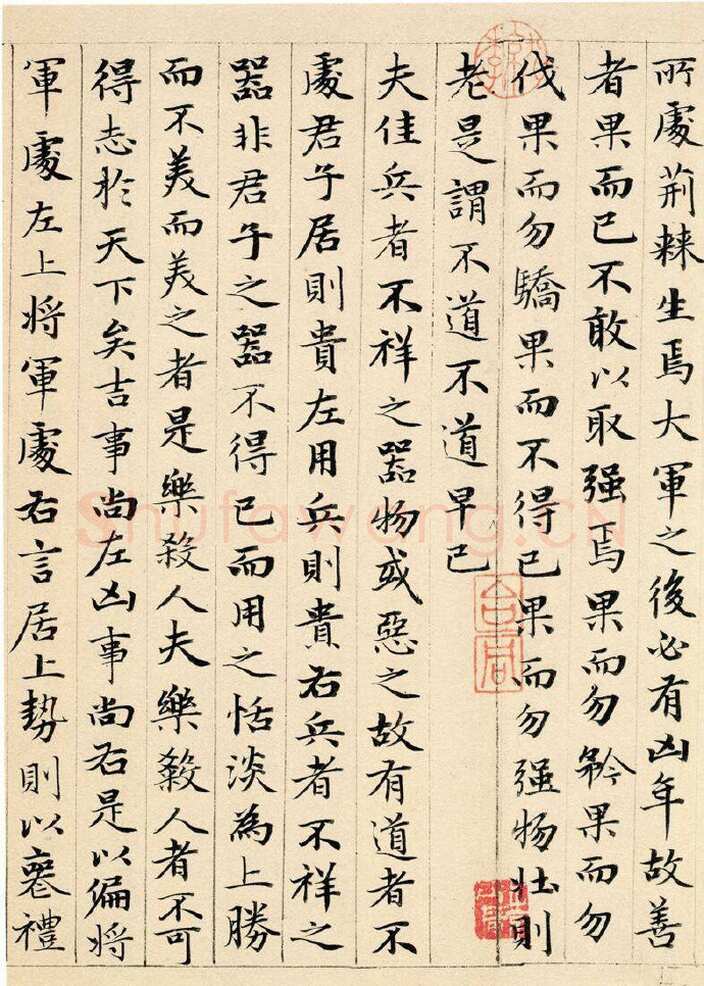 所處荆棘生焉大軍之後必有凶年故善
者果而已不敢以取强焉果而勿矜果而勿
伐果而勿驕果而不得已果而勿强物壯則
老是謂不道不道早已
夫佳兵者不祥之器物或惡之故有道者不
處君子居則貴左用兵則貴右兵者不祥之
器非君子之器不得已而用之恬淡為上勝
而不美而美之者是樂殺人夫樂殺人者不可
得志於天下矣吉事尚左凶事尚右是以偏將
軍處左上將軍處右言居上勢則以喪禮
Shufawang.CN